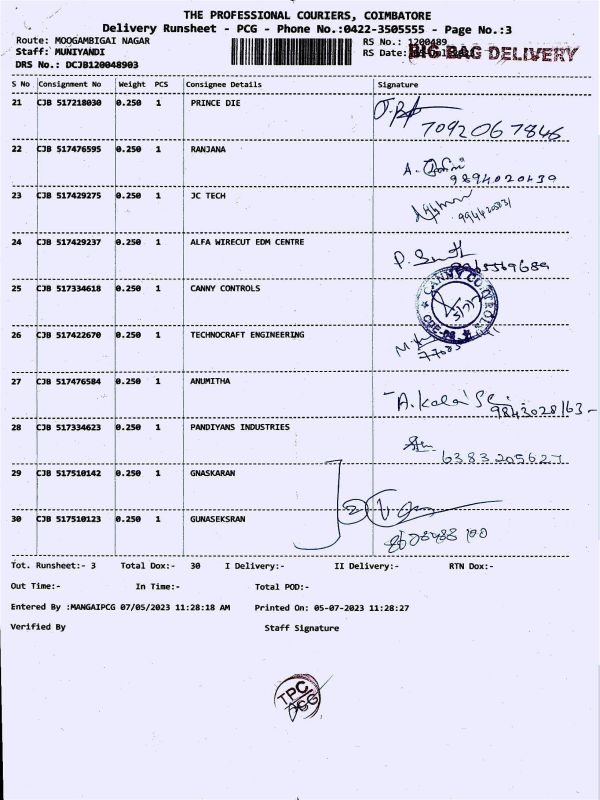 THE PROFESSIONAL COURIERS, COIMBATORE
Delivery Runsheet - PCG - Phone No.:0422-3505555 - Page No.:3
Route: MOOGAMBIGAI NAGAR
RS No.: 1200489
Staff: MUNIYANDI
RS Date:
BIG BAG DELIVERY
DRS No.: DCJB120048903
S No Consignment No Weight PCS Consignee Details Signature
21 CJB 517218030 0.250 1 PRINCE DIE
7092067846
22 CJB 517476595 0.250 1 RANJANA
A.
9894020139
23 CJB 517429275 0.250 1 JC TECH
24 CJB 517429237 0.250 1 ALFA WIRECUT EDM CENTRE
25 CJB 517334618 0.250 1 CANNY CONTROLS
26 CJB 517422670 0.250 1 TECHNOCRAFT ENGINEERING
27 CJB 517476584 0.250 1 ANUMITHA
9843028163
28 CJB 517334623 0.250 1 PANDIYANS INDUSTRIES
6383205627
29 CJB 517510142 0.250 1 GNASKARAN
30 CJB 517510123 0.250 1 GUNASEKSRAN
Tot. Runsheet:- 3 Total Dox:- 30 I Delivery:- II Delivery:- RTN Dox:-
Out Time:- In Time:- Total POD:-
Entered By :MANGAIPCG 07/05/2023 11:28:18 AM Printed On: 05-07-2023 11:28:27
Verified By Staff Signature
TPC
PCG